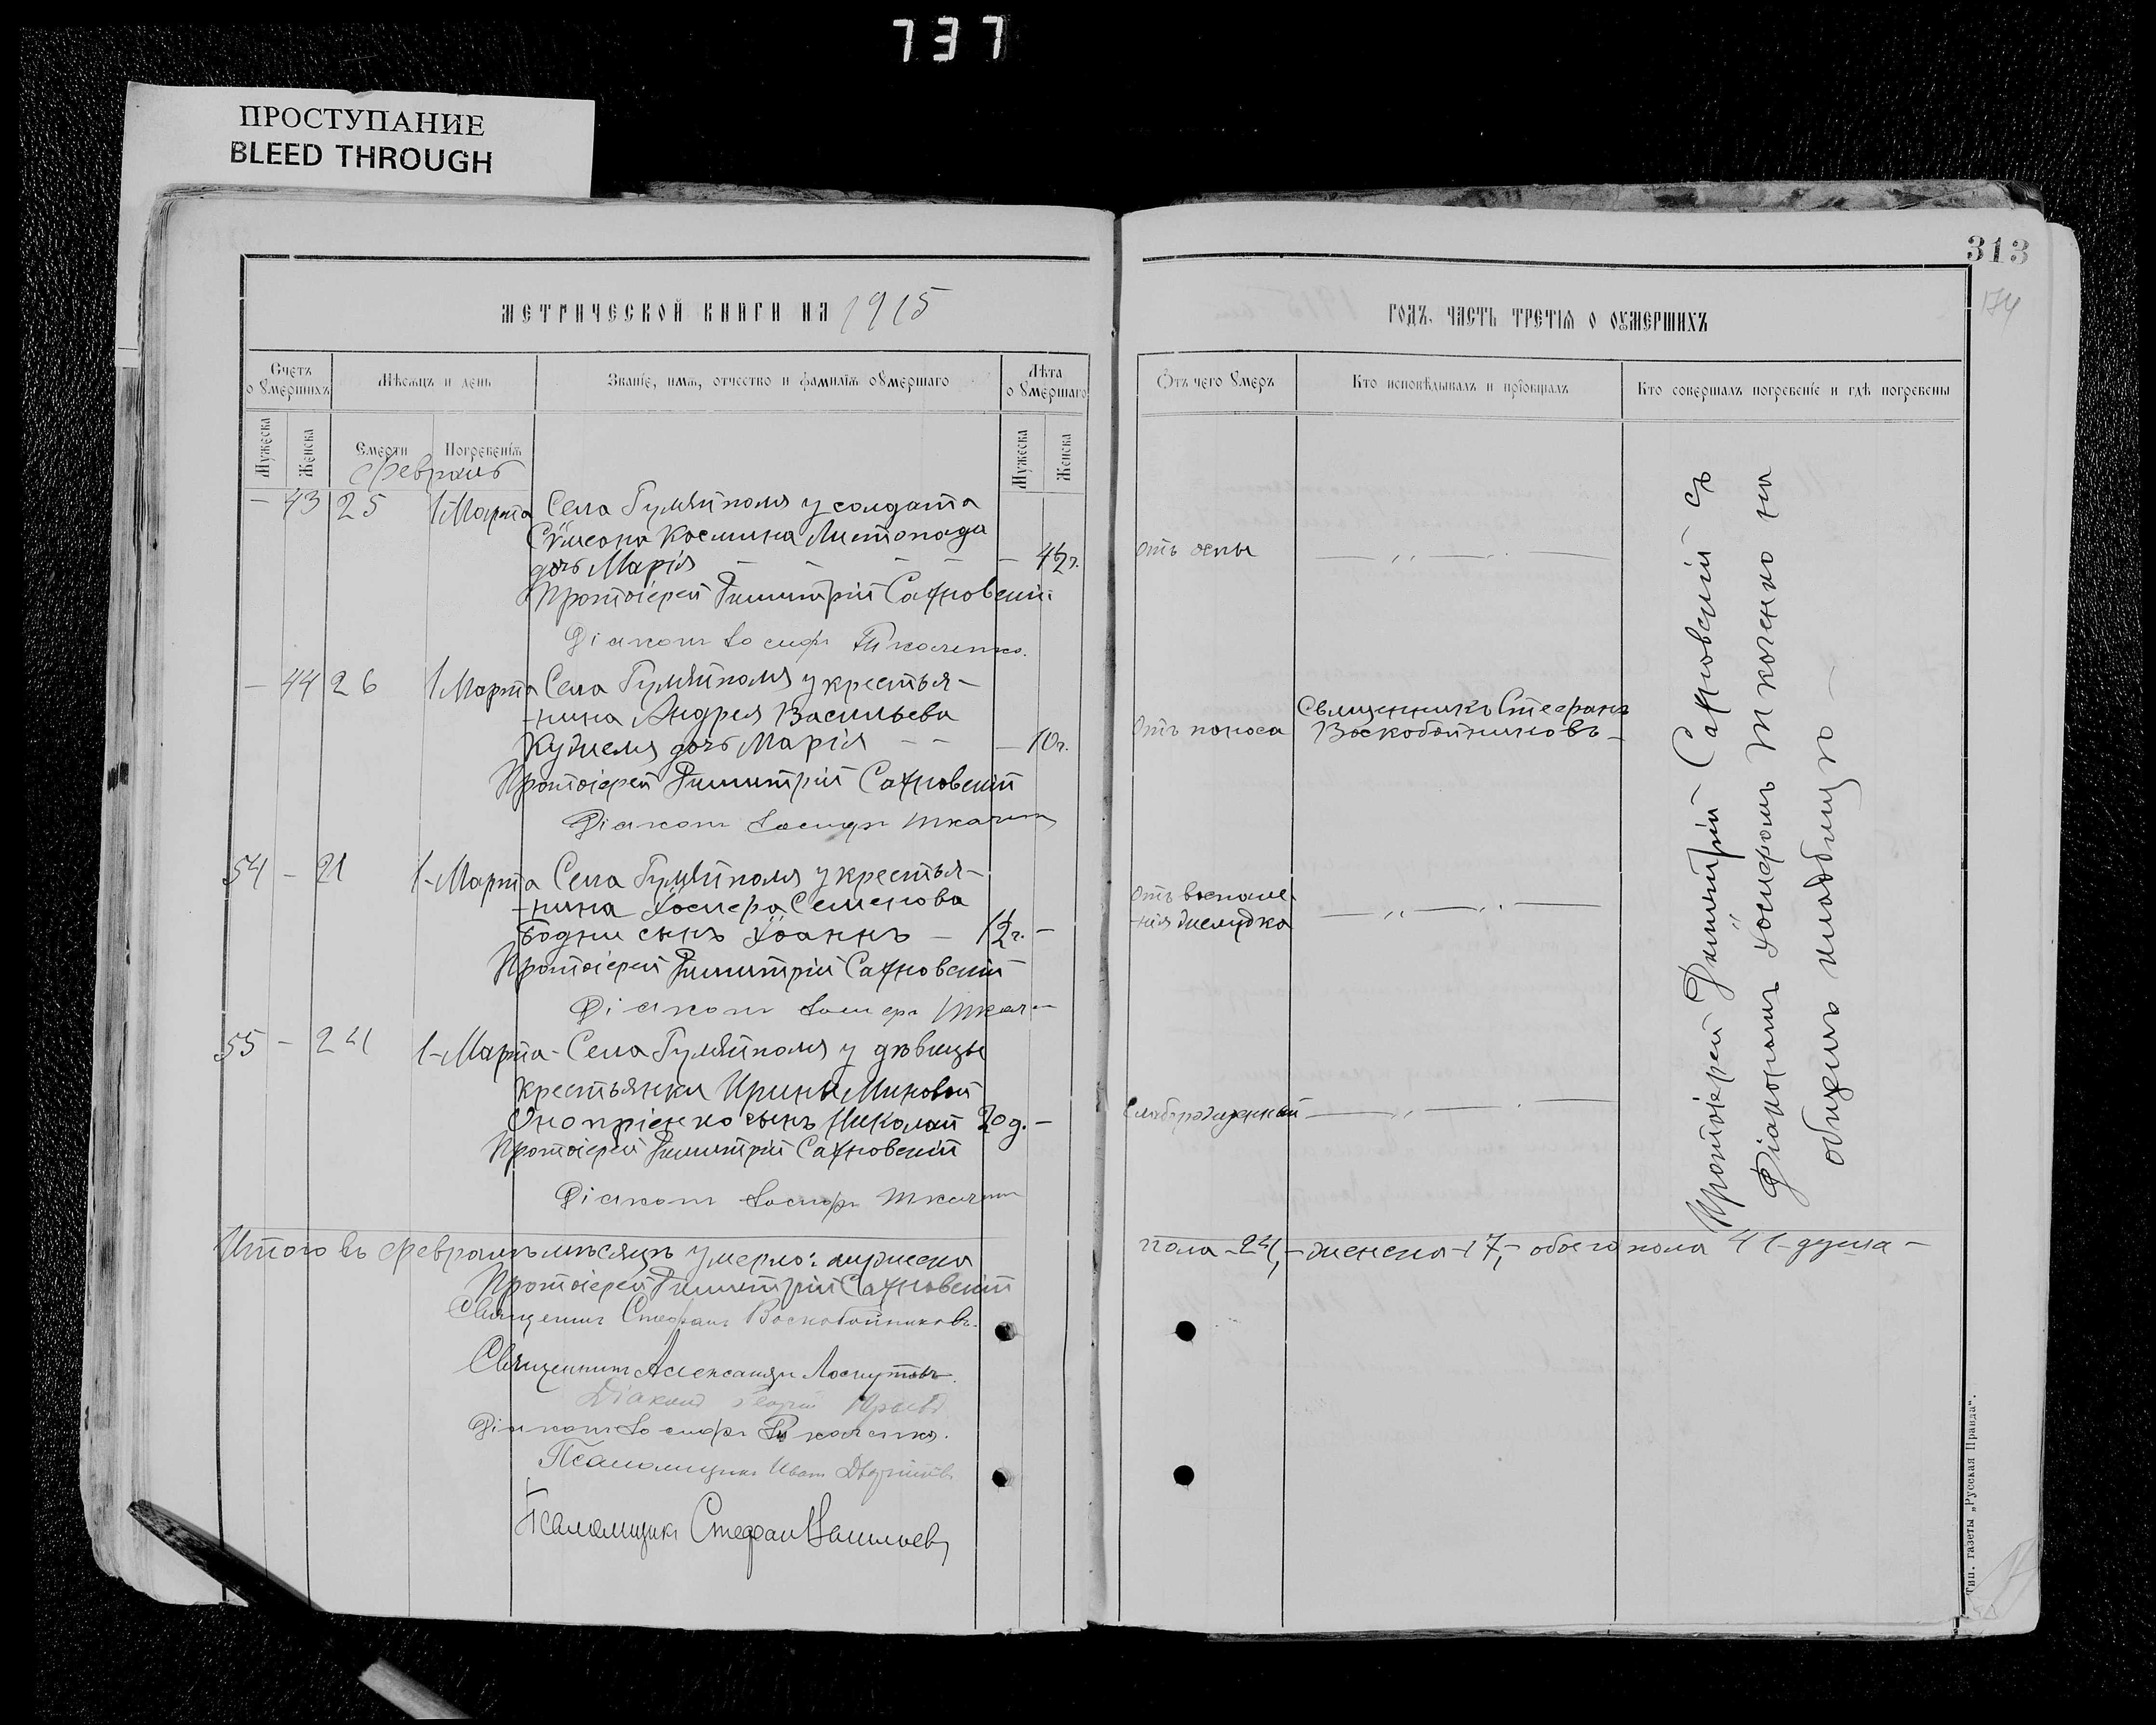 737
ПРОСТУПАНИЕ
BLEED THROUGH
313
174
МЕТРИЧЕСКОЙ КНИГИ НА 1915
ГОДЪ. ЧАСТЬ ТРЕТІЯ О ОУМЕРШИХЪ
Счетъ о Ꙋмершихъ
Мѣсяцъ и день
Званіе, имя, отчество и фамилія оꙊмершаго
Лѣта оꙊмершаго
Отъ чего Ꙋмеръ
Кто исповѣдывалъ и пріобщалъ
Кто совершалъ погребеніе и гдѣ погребены
Мужеска
Женска
Смерти
Погребенія
Мужеска
Женска
Февраль
— 43 25 1 Марта Села Гуляйполя у солдата
Сѵмеона Космина Листопада
дочь Марія — — — — — 4½ г. Отъ оспы — „ — „ —
Протоіерей Димитрій Сахновскій
Діаконъ Іосифъ Ткаченко.
— 44 26 1 Марта Села Гуляйполя у крестья-
-нина Андрея Васильева
Кужеля дочь Марія — — — 10 г. Отъ поноса Священникъ Стефанъ
Воскобойниковъ —
Протоіерей Димитрій Сахновскій
Діаконъ Іосифъ Ткачен
54 — 21 1-Марта Села Гуляйполя у крестья-
-нина Іосифа Семенова
Бодни сынъ Іоаннъ — ½ г. — Отъ воспале-
-нія желудка — „ — „ —
Протоіерей Димитрій Сахновскій
Діаконъ Іосифъ Ткачен
55 — 24 1-Марта - Села Гуляйполя у дѣвицы
крестьянки Ирины Миновой
Оноприенко сынъ Николай 20 д. — Слаборожденный — „ — . —
Протоіерей Димитрій Сахновскій
Діаконъ Іосифъ Ткачен
Протоіерей Димитрій Сахновскій съ
Діакономъ Іосифомъ Ткаченко на
общемъ кладбищѣ —
Итого въ февралѣ мѣсяцѣ умерло: мужеска
пола - 24, - женска - 17, - обоего пола 41 - душа -
Протоіерей Димитрій Сахновскій
Священникъ Стефанъ Воскобойниковъ.
Священникъ Александръ Лоскутовъ.
Діаконъ
Діаконъ Іосифъ Ткаченко.
Псаломщикъ Иванъ
Псаломщикъ Стефан Васильевъ
Тип. газеты „Русская Правда".